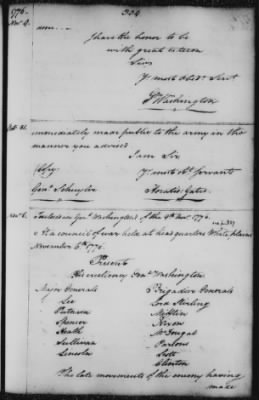 1776.
334
Nov. 4.
I have the honor to be
with great esteem
Sir
Yr. most obedt. Servt.
G. Washington
immediately made public to the army in the
manner you advised
I am Sir
Yr. most obt. servant
Copy
Genl. Schuyler
Horatio Gates
Nov. 6.
Genl. Washington's of the 6th Novr. 1776.
At a council of war held at head quarters White plains
November 6th 1776.
Present
His excellency Genl. Washington
Major Generals
Brigadier Generals
Lee
Lord Sterling
Putnam
Mifflin
Spencer
Nixon
Heath
McDougal
Sullivan
Parsons
Lincoln
Scott
Clinton
The late movements of the enemy having
made